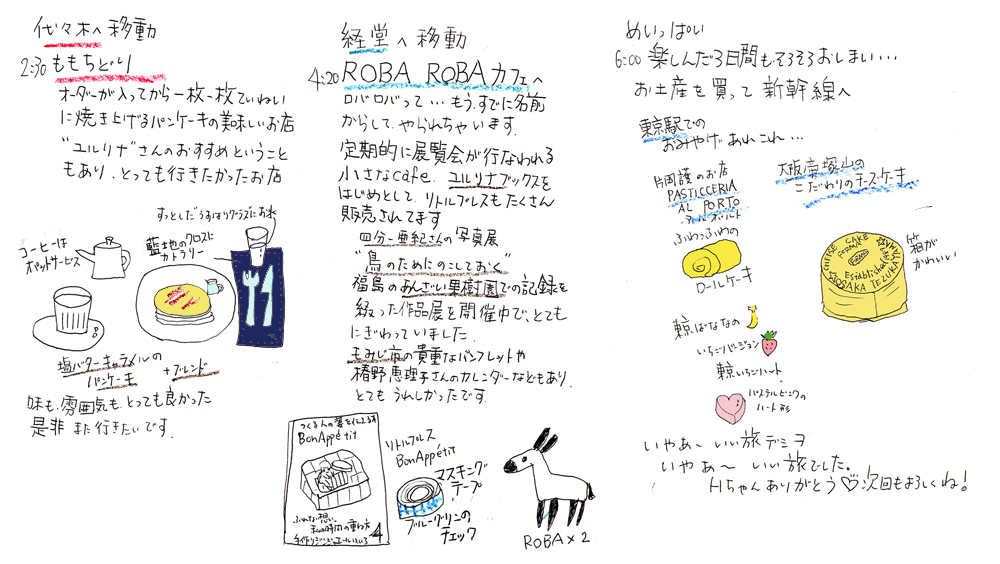 代々木へ移動
2:30 ももちどり
オーダーが入ってから一枚一枚ていねい
に焼き上げるパンケーキの美味しいお店
"ユルリナ"さんのおすすめということ
もあり、とっても行きたかったお店
コーヒーは
ポットサービス
藍地のクロスに
カトラリー
塩バターキャラメルの
パンケーキ + ブレンド
味も、雰囲気も、とっても良かった
是非 また行きたいです。
経堂へ移動
4:20 ROBA ROBAカフェへ
ロバロバって…もう、すでに名前
からして、やられちゃいます。
定期的に展覧会が行なわれる
小さなcafe. ユルリナブックスを
はじめとして、リトルプレスもたくさん
販売されてます
四分一亜紀さんの写真展
"鳥のためにのこしておく"
福島のあんざい果樹園での記録を
綴った作品展を開催中で、とても
にぎわっていました。
もみじ市の貴重なパンフレットや
椿野恵理子さんのカレンダーなどもあり、
とてもうれしかったです。
BonAppétit
4
リトルプレス
BonAppétit
マスキング
テープ
ブルーグリーンの
チェック
ROBA×2
めいっぱい
6:00 楽しんだ3日間もそろそろおしまい…
お土産を買って 新幹線へ
東京駅での
おみやげあれこれ…
片岡護のお店
PASTICCERIA
AL PORTO
アルポルト
ふわっふわの
ロールケーキ
大阪帝塚山の
こだわりのチーズケーキ
箱が
かわいい
CHEESE CAKE
Established
OSAKA TEZUKA
東京ばななの
いちごバージョン
東京いちごハート
パステルピンクの
ハート形
いやぁ〜 いい旅デシヲ
いやぁ〜 いい旅でした。
Hちゃんありがとう♡次回もよろしくね!